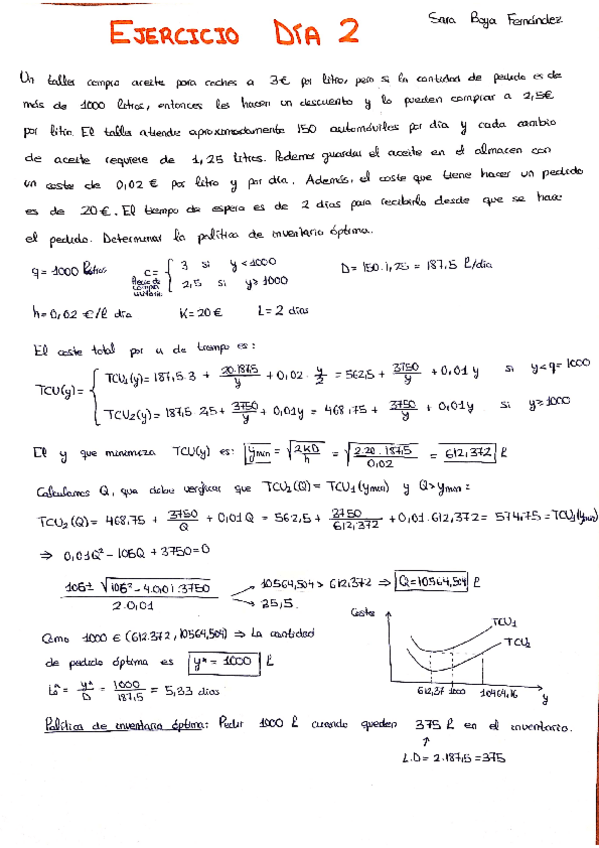 Sara Boya Fernández
EJERCICIO DÍA 2
Un taller compra aceite para coches a 3€ por litro, pero si la cantidad de pedido es de
más de 1000 litros, entonces les hacen un descuento y lo pueden comprar a 2,5€
por litro. El taller atiende aproximadamente 150 automóviles por día y cada cambio
de aceite requiere de 1,25 litros. Podemos guardar el aceite en el almacen con
un coste de 0,02 € por litro y por día. Además, el coste que tiene hacer un pedido
es de 20€. El tiempo de espera es de 2 días para recibirlo desde que se hace
el pedido. Determinar la política de inventario óptima.
q = 1000 litros c = { 3 si y < 1000 D = 150·1,25 = 187,5 l/día
Precio de compra unitario 2,5 si y ≥ 1000
h = 0,02 €/l día K = 20€ L = 2 días
El coste total por u de tiempo es:
TCU(y) = { TCU₁(y) = 187,5·3 + 20·187,5/y + 0,02 · y/2 = 562,5 + 3750/y + 0,01 y si y < q = 1000
TCU₂(y) = 187,5·2,5 + 3750/y + 0,01y = 468,75 + 3750/y + 0,01y si y ≥ 1000
El y que minimiza TCU(y) es: ymin = √(2KD/h) = √(2·20·187,5/0,02) = 612,372 l
Calculamos Q, que debe verificar que TCU₂(Q) = TCU₁(ymin) y Q > ymin:
TCU₂(Q) = 468,75 + 3750/Q + 0,01Q = 562,5 + 3750/612,372 + 0,01·612,372 = 574,75 = TCU₁(ymin)
⇒ 0,01Q² - 106Q + 3750 = 0
106 ± √(106² - 4·0,01·3750) / 2·0,01 → 10564,504 > 612,372 ⇒ Q = 10564,504 l
→ 25,5.
Como 1000 ∈ (612.372, 10564,504) ⇒ La cantidad
de pedido óptima es y* = 1000 l
t₀* = y*/D = 1000/187,5 = 5,33 días
Coste
TCU₁
TCU₂
612,37 1000 10464,16 y
Política de inventario óptima: Pedir 1000 l cuando queden 375 l en el inventario.
↑
L·D = 2·187,5 = 375